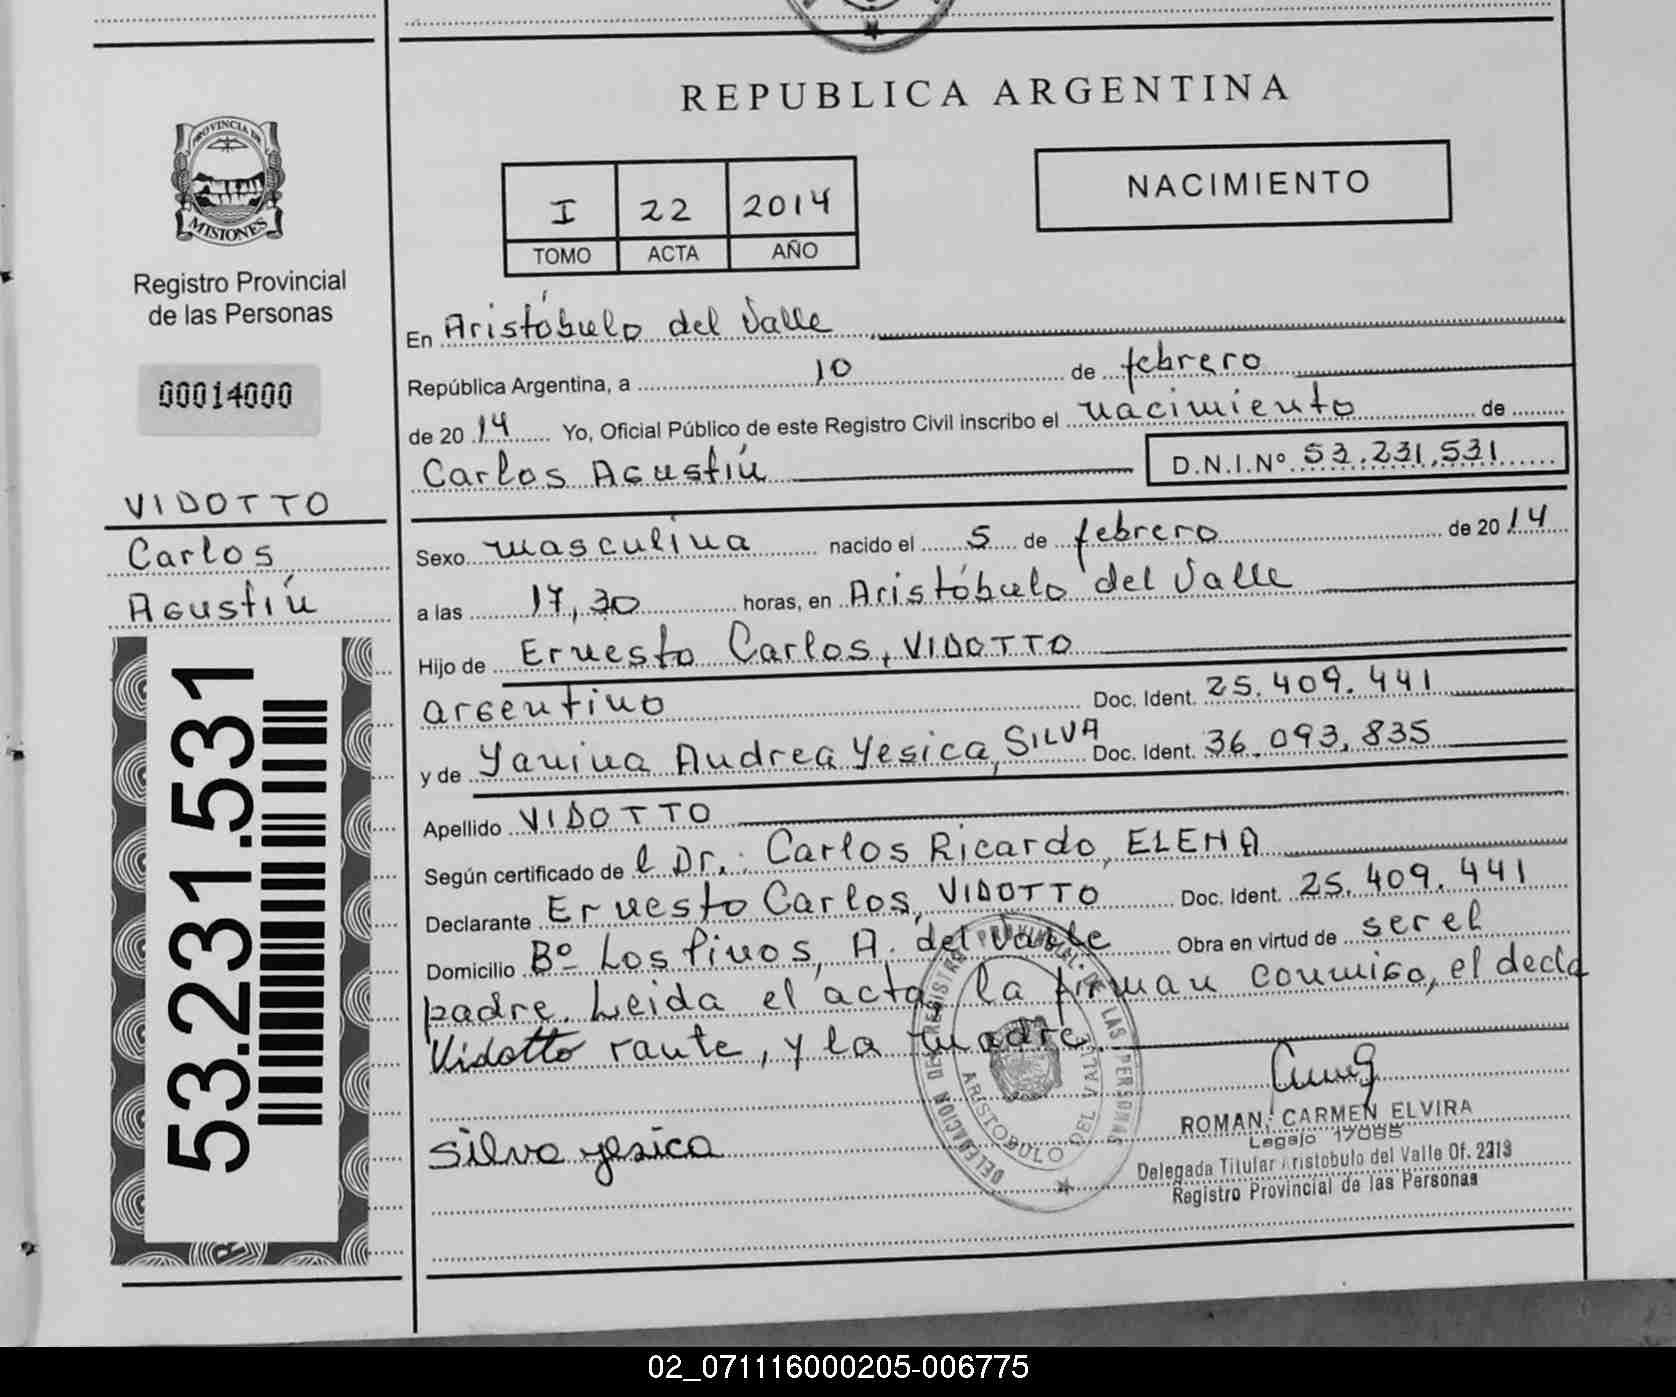 REPUBLICA ARGENTINA
PROVINCIA DE
MISIONES
Registro Provincial
de las Personas
00014000
VIDOTTO
Carlos
Agustín
53.231.531
I 22 2014
TOMO ACTA AÑO
NACIMIENTO
En Aristóbulo del Valle
República Argentina, a 10 de febrero
de 2014 Yo, Oficial Público de este Registro Civil inscribo el nacimiento de
Carlos Agustín D.N.I.Nº 53.231.531
Sexo masculina nacido el 5 de febrero de 2014
a las 17,30 horas, en Aristóbulo del Valle
Hijo de Ernesto Carlos, VIDOTTO
argentino Doc. Ident. 25.409.441
y de Yanina Andrea Yesica, SILVA Doc. Ident. 36.093.835
Apellido VIDOTTO
Según certificado de l Dr.: Carlos Ricardo, ELENA
Declarante Ernesto Carlos, VIDOTTO Doc. Ident. 25.409.441
Domicilio Bº Los Pinos, A. del Valle Obra en virtud de ser el
padre. Leida el acta, la firman conmigo, el decla
Vidotto rante, y la madre.
Silva yesica
DELEGACION DEL REGISTRO PROVINCIAL DE LAS PERSONAS
ARISTOBULO DEL VALLE
ROMAN, CARMEN ELVIRA
Legajo 17085
Delegada Titular Aristobulo del Valle Of. 2313
Registro Provincial de las Personas
02_071116000205-006775